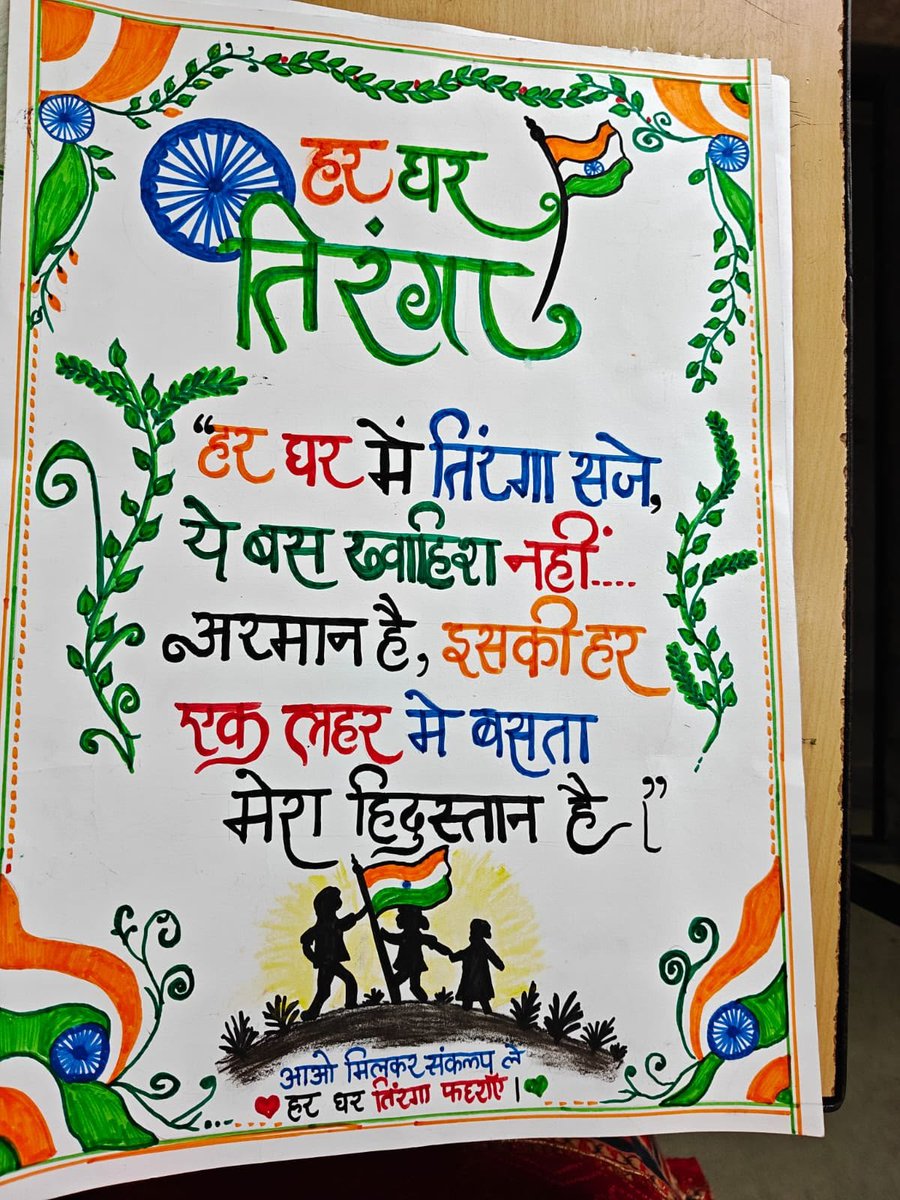 हर घर
तिरंगा
“हर घर में तिरंगा सजे,
ये बस ख्वाहिश नहीं....
अरमान है, इसकी हर
एक लहर मे बसता
मेरा हिदुस्तान है।”
आओ मिलकर संकलप ले
हर घर तिरंगा फहराएं।